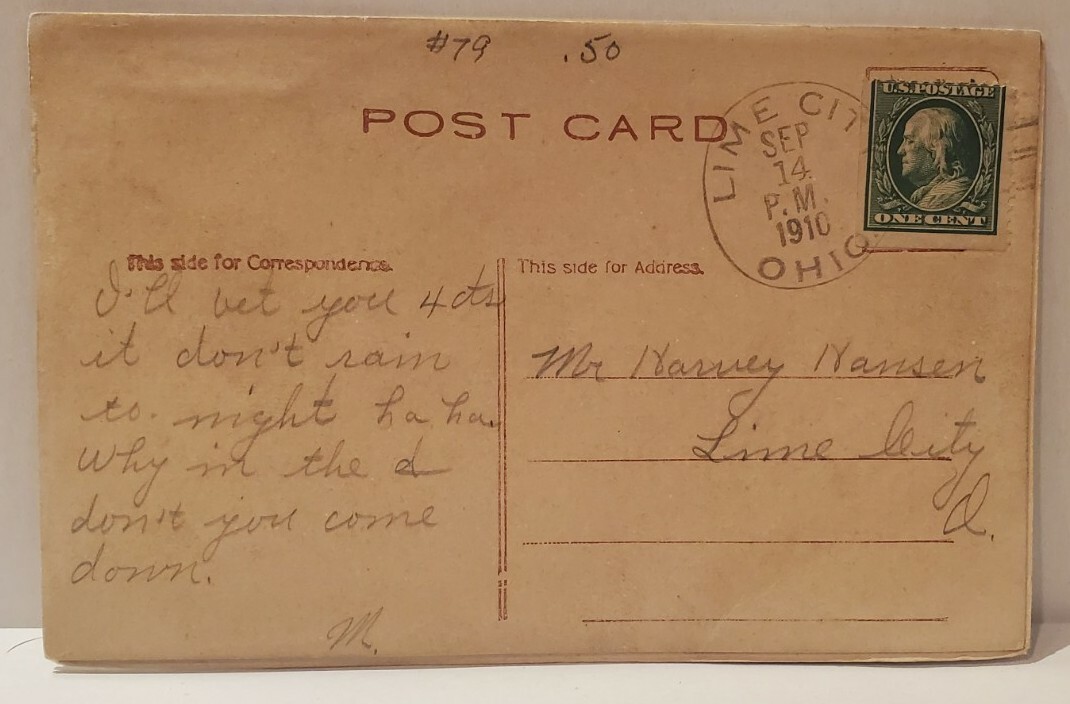 #79 .50
POST CARD
LIME CITY
SEP
14
P.M.
1910
OHIO
U.S. POSTAGE
ONE CENT
This side for Correspondence.
I'll bet you 4 cts
it don't rain
to. night ha ha.
Why in the d
don't you come
down.
M.
This side for Address.
Mr Harvey Hansen
Lime City
O.